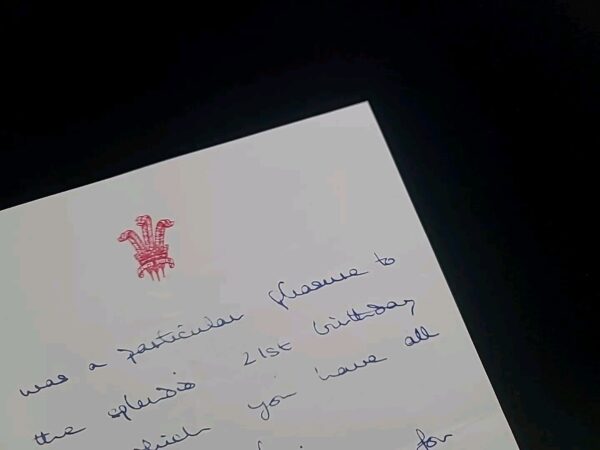 was a particular pleasure to
the splendid 21st birthday
which you have all
for